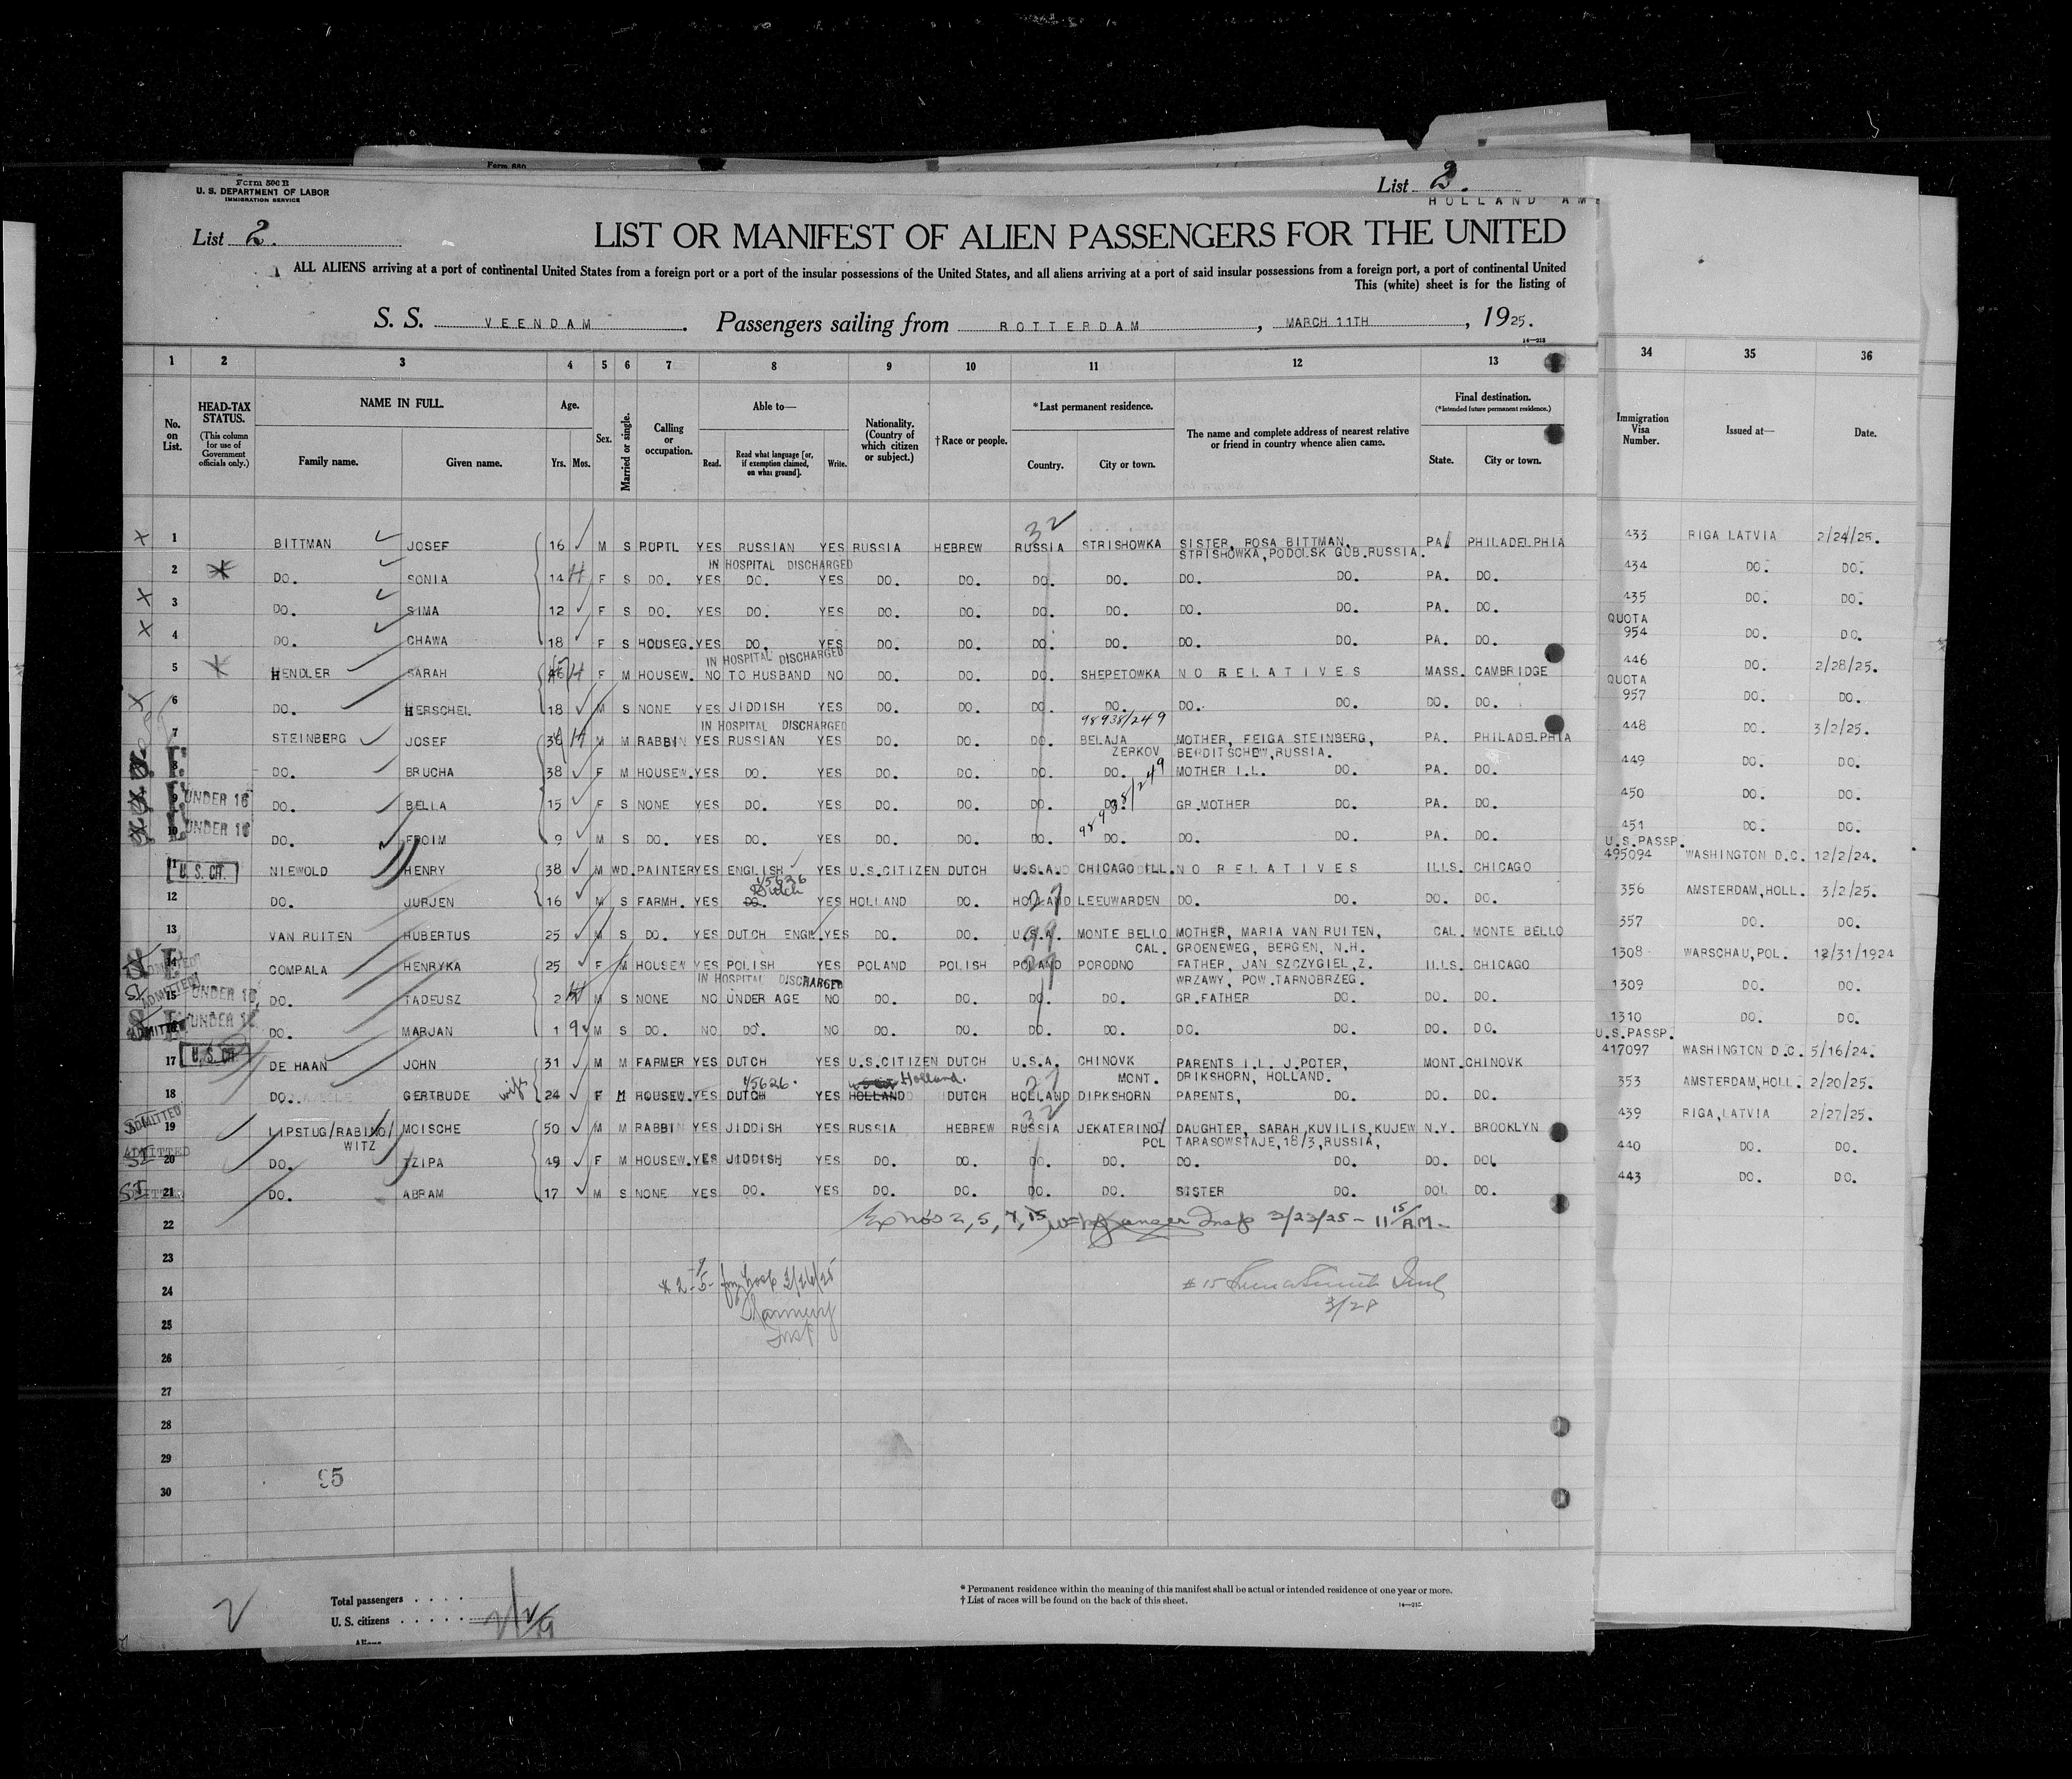 Form 500 B
U. S. DEPARTMENT OF LABOR
IMMIGRATION SERVICE
List 2.
List 2.
HOLLAND AME
LIST OR MANIFEST OF ALIEN PASSENGERS FOR THE UNITED
ALL ALIENS arriving at a port of continental United States from a foreign port or a port of the insular possessions of the United States, and all aliens arriving at a port of said insular possessions from a foreign port, a port of continental United
This (white) sheet is for the listing of
S. S. VEENDAM. Passengers sailing from ROTTERDAM, MARCH 11TH, 1925.
1 2 3 4 5 6 7 8 9 10 11 12 13 34 35 36
No. on List.
HEAD-TAX STATUS. (This column for use of Government officials only.)
NAME IN FULL.
Family name. Given name.
Age. Yrs. Mos.
Sex.
Married or single.
Calling or occupation.
Able to— Read. Read what language [or, if exemption claimed, on what ground]. Write.
Nationality. (Country of which citizen or subject.)
† Race or people.
*Last permanent residence. Country. City or town.
The name and complete address of nearest relative or friend in country whence alien came.
Final destination. (*Intended future permanent residence.) State. City or town.
Immigration Visa Number.
Issued at—
Date.
1 BITTMAN JOSEF 16 M S PUPIL YES RUSSIAN YES RUSSIA HEBREW RUSSIA STRISHOWKA SISTER, ROSA BITTMAN, STRISHOWKA, PODOLSK GUB.RUSSIA. PA. PHILADELPHIA 433 RIGA LATVIA 2/24/25.
IN HOSPITAL DISCHARGED
2 DO. SONIA 14 F S DO. YES DO. YES DO. DO. DO. DO. DO. DO. PA. DO. 434 DO. DO.
3 DO. SIMA 12 F S DO. YES DO. YES DO. DO. DO. DO. DO. DO. PA. DO. 435 DO. DO.
4 DO. CHAWA 18 F S HOUSEG. YES DO. YES DO. DO. DO. DO. DO. DO. PA. DO. QUOTA 954 DO. DO.
IN HOSPITAL DISCHARGED
5 HENDLER SARAH F M HOUSEW. NO TO HUSBAND NO DO. DO. DO. SHEPETOWKA NO RELATIVES MASS. CAMBRIDGE 446 DO. 2/28/25.
6 DO. HERSCHEL 18 M S NONE YES JIDDISH YES DO. DO. DO. DO. DO. DO. DO. DO. QUOTA 957 DO. DO.
IN HOSPITAL DISCHARGED
98938/249
7 STEINBERG JOSEF M M RABBIN YES RUSSIAN YES DO. DO. DO. BELAJA ZERKOV MOTHER, FEIGA STEINBERG, BERDITSCHEW,RUSSIA. PA. PHILADELPHIA 448 DO. 3/2/25.
8 DO. BRUCHA 38 F M HOUSEW. YES DO. YES DO. DO. DO. DO. MOTHER I.L. DO. PA. DO. 449 DO. DO.
9 UNDER 16 DO. BELLA 15 F S NONE YES DO. YES DO. DO. DO. DO. GR.MOTHER DO. PA. DO. 450 DO. DO.
10 UNDER 16 DO. FROIM 9 M S DO. YES DO. YES DO. DO. DO. DO. DO. DO. PA. DO. 451 DO. DO.
11 U. S. CIT. NIEWOLD HENRY 38 M WD. PAINTER YES ENGLISH YES U.S.CITIZEN DUTCH U.S.A. CHICAGO ILL. NO RELATIVES ILLS. CHICAGO U.S.PASSP. 495094 WASHINGTON D.C. 12/2/24.
12 DO. JURJEN 16 M S FARMH. YES DO. Dutch YES HOLLAND DO. HOLLAND LEEUWARDEN DO. DO. DO. DO. 356 AMSTERDAM,HOLL. 3/2/25.
13 VAN RUITEN HUBERTUS 25 M S DO. YES DUTCH ENGL. YES DO. DO. U.S.A. MONTE BELLO CAL. MOTHER, MARIA VAN RUITEN, GROENEWEG, BERGEN, N.H. CAL. MONTE BELLO 357 DO. DO.
14 COMPALA HENRYKA 25 F M HOUSEW YES POLISH YES POLAND POLISH POLAND PORODNO FATHER, JAN SZCZYGIEL,Z. WRZAWY, POW.TARNOBRZEG. ILLS. CHICAGO 1308 WARSCHAU,POL. 12/31/1924
IN HOSPITAL DISCHARGED
15 ADMITTED UNDER 16 DO. TADEUSZ 2 M S NONE NO UNDER AGE NO DO. DO. DO. DO. GR.FATHER DO. DO. DO. 1309 DO. DO.
16 ADMITTED UNDER 16 DO. MARJAN 1 9 M S DO. NO DO. NO DO. DO. DO. DO. DO. DO. DO. DO. 1310 DO. DO.
17 U. S. CIT. DE HAAN JOHN 31 M M FARMER YES DUTCH YES U.S.CITIZEN DUTCH U.S.A. CHINOVK MONT. PARENTS I.L. J.POTER, DRIKSHORN, HOLLAND. MONT. CHINOVK U.S.PASSP. 417097 WASHINGTON D.C. 5/16/24.
18 DO. GERTRUDE wife 24 F M HOUSEW. YES DUTCH YES HOLLAND Holland. DUTCH HOLLAND DIRKSHORN PARENTS, DO. DO. DO. 353 AMSTERDAM,HOLL. 2/20/25.
19 ADMITTED LIPSTUG/RABINO/WITZ MOISCHE 50 M M RABBIN YES JIDDISH YES RUSSIA HEBREW RUSSIA JEKATERINO/POL DAUGHTER, SARAH KUVILIS,KUJEW TARASOWSTAJE,18/3,RUSSIA, N.Y. BROOKLYN 439 RIGA,LATVIA 2/27/25.
20 ADMITTED DO. TZIPA 49 F M HOUSEW. YES JIDDISH YES DO. DO. DO. DO. DO. DO. DO. DO. 440 DO. DO.
21 SI DO. ABRAM 17 M S NONE YES DO. YES DO. DO. DO. DO. SISTER DO. DO. DO. 443 DO. DO.
22 2, 5, 7, 15 Insp 3/23/25 - 11 15 AM
23
24 # 2-5-7 fm hosp 3/26/25 # 15 3/28
25 Insp
26
27
28
29
95
30
Total passengers
U. S. citizens
Aliens
* Permanent residence within the meaning of this manifest shall be actual or intended residence of one year or more.
† List of races will be found on the back of this sheet.